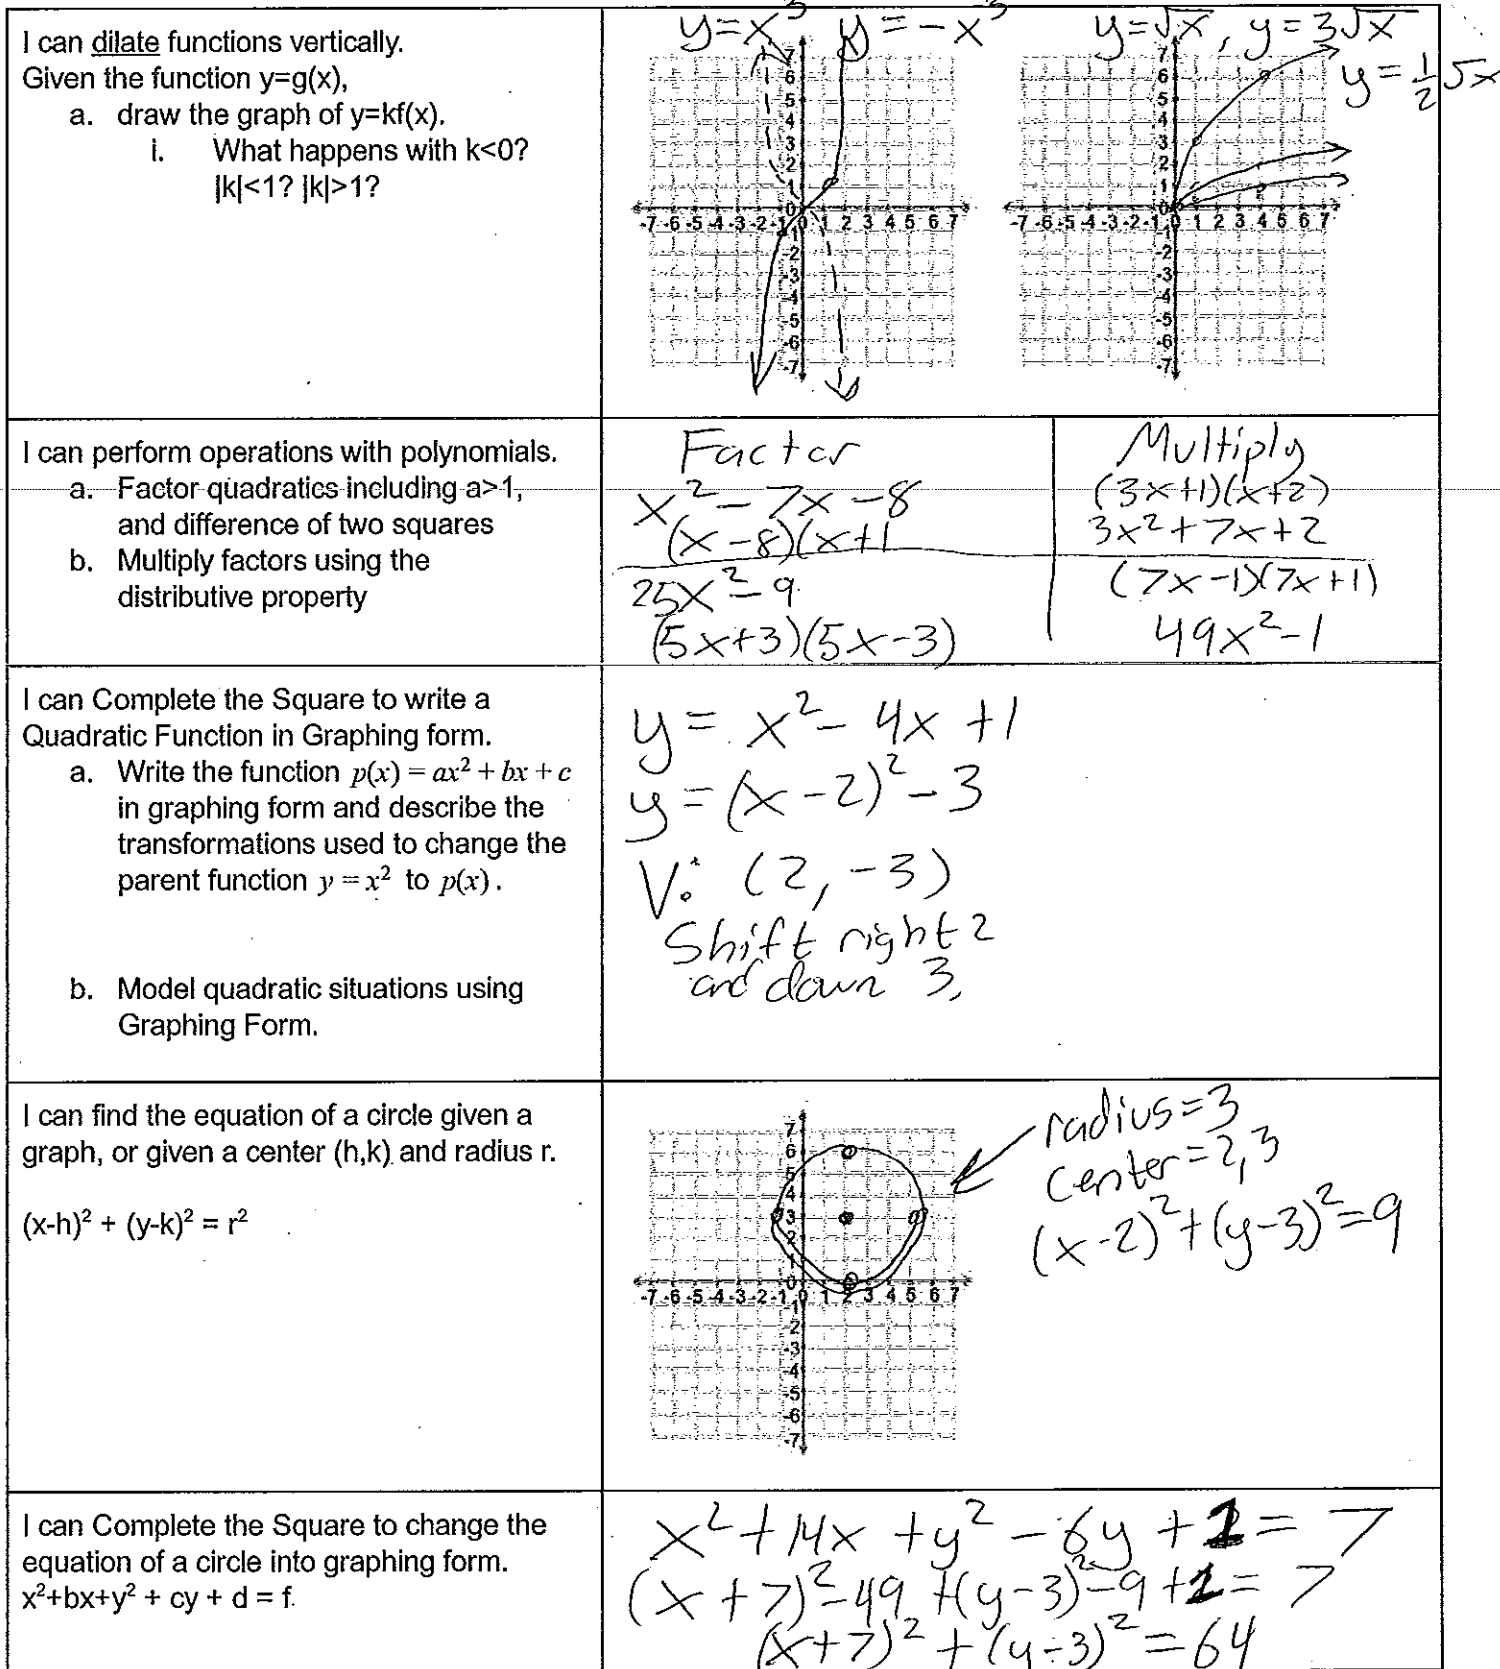 I can dilate functions vertically.
Given the function y=g(x),
a. draw the graph of y=kf(x).
i. What happens with k<0?
|k|<1? |k|>1?
y=x³ y=-x³
7
6
5
4
3
2
1
0
-7 -6 -5 -4 -3 -2 -1 0 1 2 3 4 5 6 7
-1
-2
-3
-4
-5
-6
-7
y=√x, y=3√x
y=½√x
7
6
5
4
3
2
1
0
-7 -6 -5 -4 -3 -2 -1 0 1 2 3 4 5 6 7
-1
-2
-3
-4
-5
-6
-7
I can perform operations with polynomials.
a. Factor quadratics including a>1,
and difference of two squares
b. Multiply factors using the
distributive property
Factor
x²-7x-8
(x-8)(x+1
25x²-9
(5x+3)(5x-3)
Multiply
(3x+1)(x+2)
3x²+7x+2
(7x-1)(7x+1)
49x²-1
I can Complete the Square to write a
Quadratic Function in Graphing form.
a. Write the function p(x) = ax² + bx + c
in graphing form and describe the
transformations used to change the
parent function y = x² to p(x).
b. Model quadratic situations using
Graphing Form.
y = x²-4x+1
y=(x-2)²-3
V: (2,-3)
Shift right 2
and down 3.
I can find the equation of a circle given a
graph, or given a center (h,k) and radius r.
(x-h)² + (y-k)² = r²
7
6
5
4
3
2
1
0
-7 -6 -5 -4 -3 -2 -1 0 1 2 3 4 5 6 7
-1
-2
-3
-4
-5
-6
-7
radius=3
center=2,3
(x-2)²+(y-3)²=9
I can Complete the Square to change the
equation of a circle into graphing form.
x²+bx+y² + cy + d = f.
x²+14x+y²-6y+1=7
(x+7)²-49+(y-3)²-9+1=7
(x+7)²+(y-3)²=64